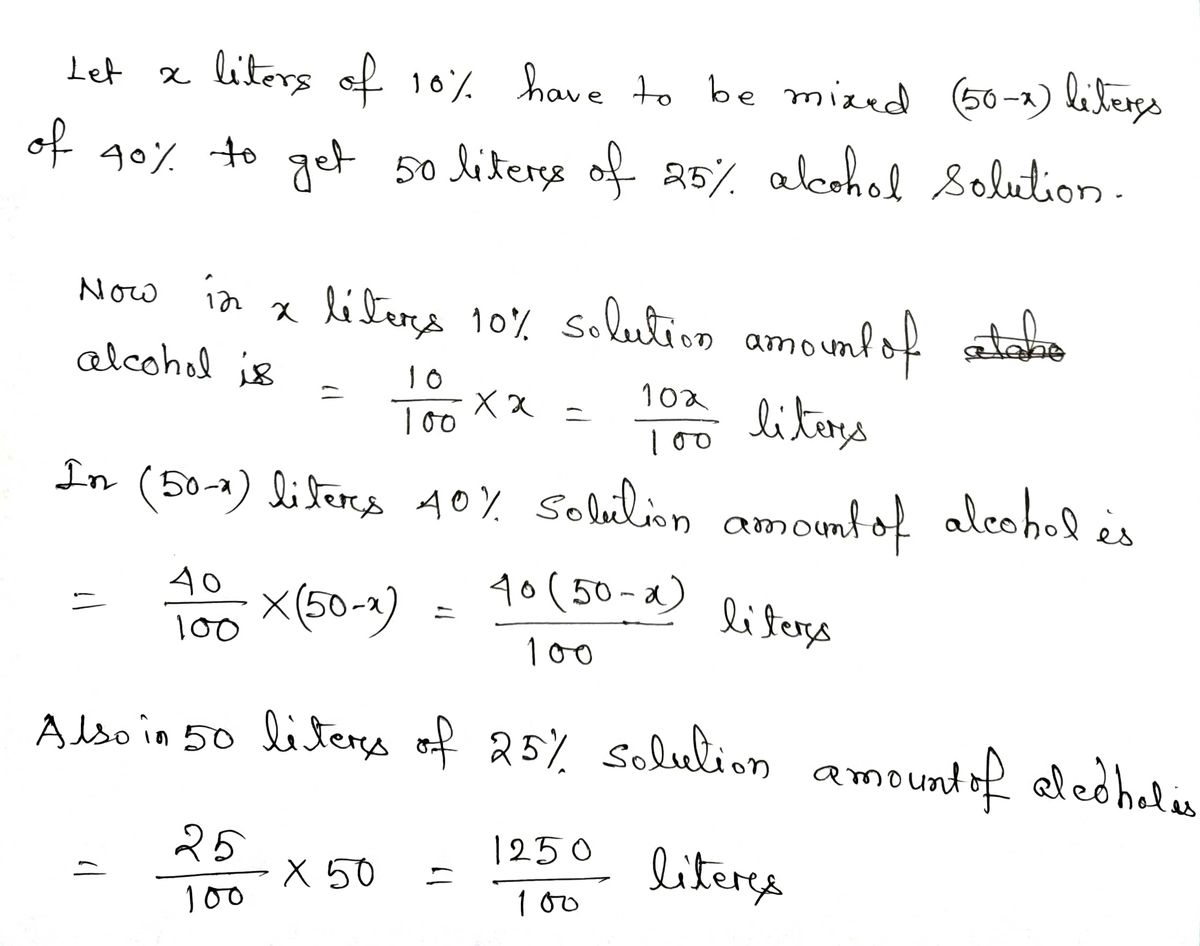 Let x liters of 10% have to be mixed (50-x) liters
of 40% to get 50 liters of 25% alcohol solution.
Now in x liters 10% solution amount of
alcohol is = 10/100 × x = 10x/100 liters
In (50-x) liters 40% solution amount of alcohol is
= 40/100 × (50-x) = 40(50-x)/100 liters
Also in 50 liters of 25% solution amount of alcohol is
= 25/100 × 50 = 1250/100 liters